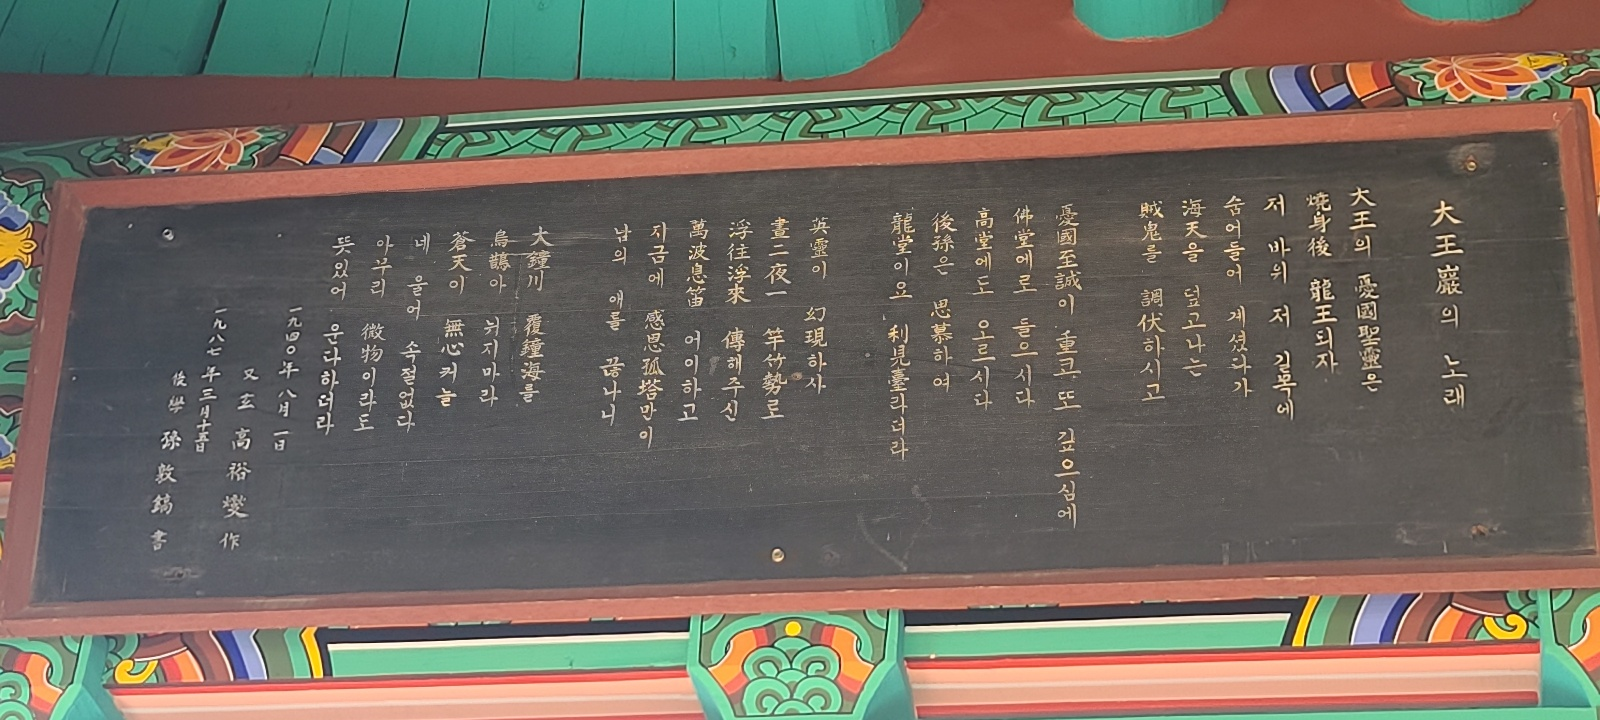 大王巖의 노래
大王의 憂國聖靈은
燒身後 龍王되자
저 바위 저 길목에
숨어들어 계셨다가
海天을 덮고나는
賊鬼를 調伏하시고
憂國至誠이 重코 또 깊으심에
佛堂에로 들으시다
高堂에도 오르시다
後孫은 思慕하여
龍堂이요 利見臺라더라
英靈이 幻現하사
晝二夜一 竿竹勢로
浮往浮來 傳해주신
萬波息笛 어이하고
지금에 感恩孤塔만이
남의 애를 끊나니
大鐘川 覆鐘海를
烏鵲아 뉘지마라
蒼天이 無心커늘
네 울어 속절없다
아무리 微物이라도
뜻있어 운다하더라
一九四○年 八月 一日
又玄 高裕燮 作
一九八七年 三月 十五日
後學 孫敦鎬 書